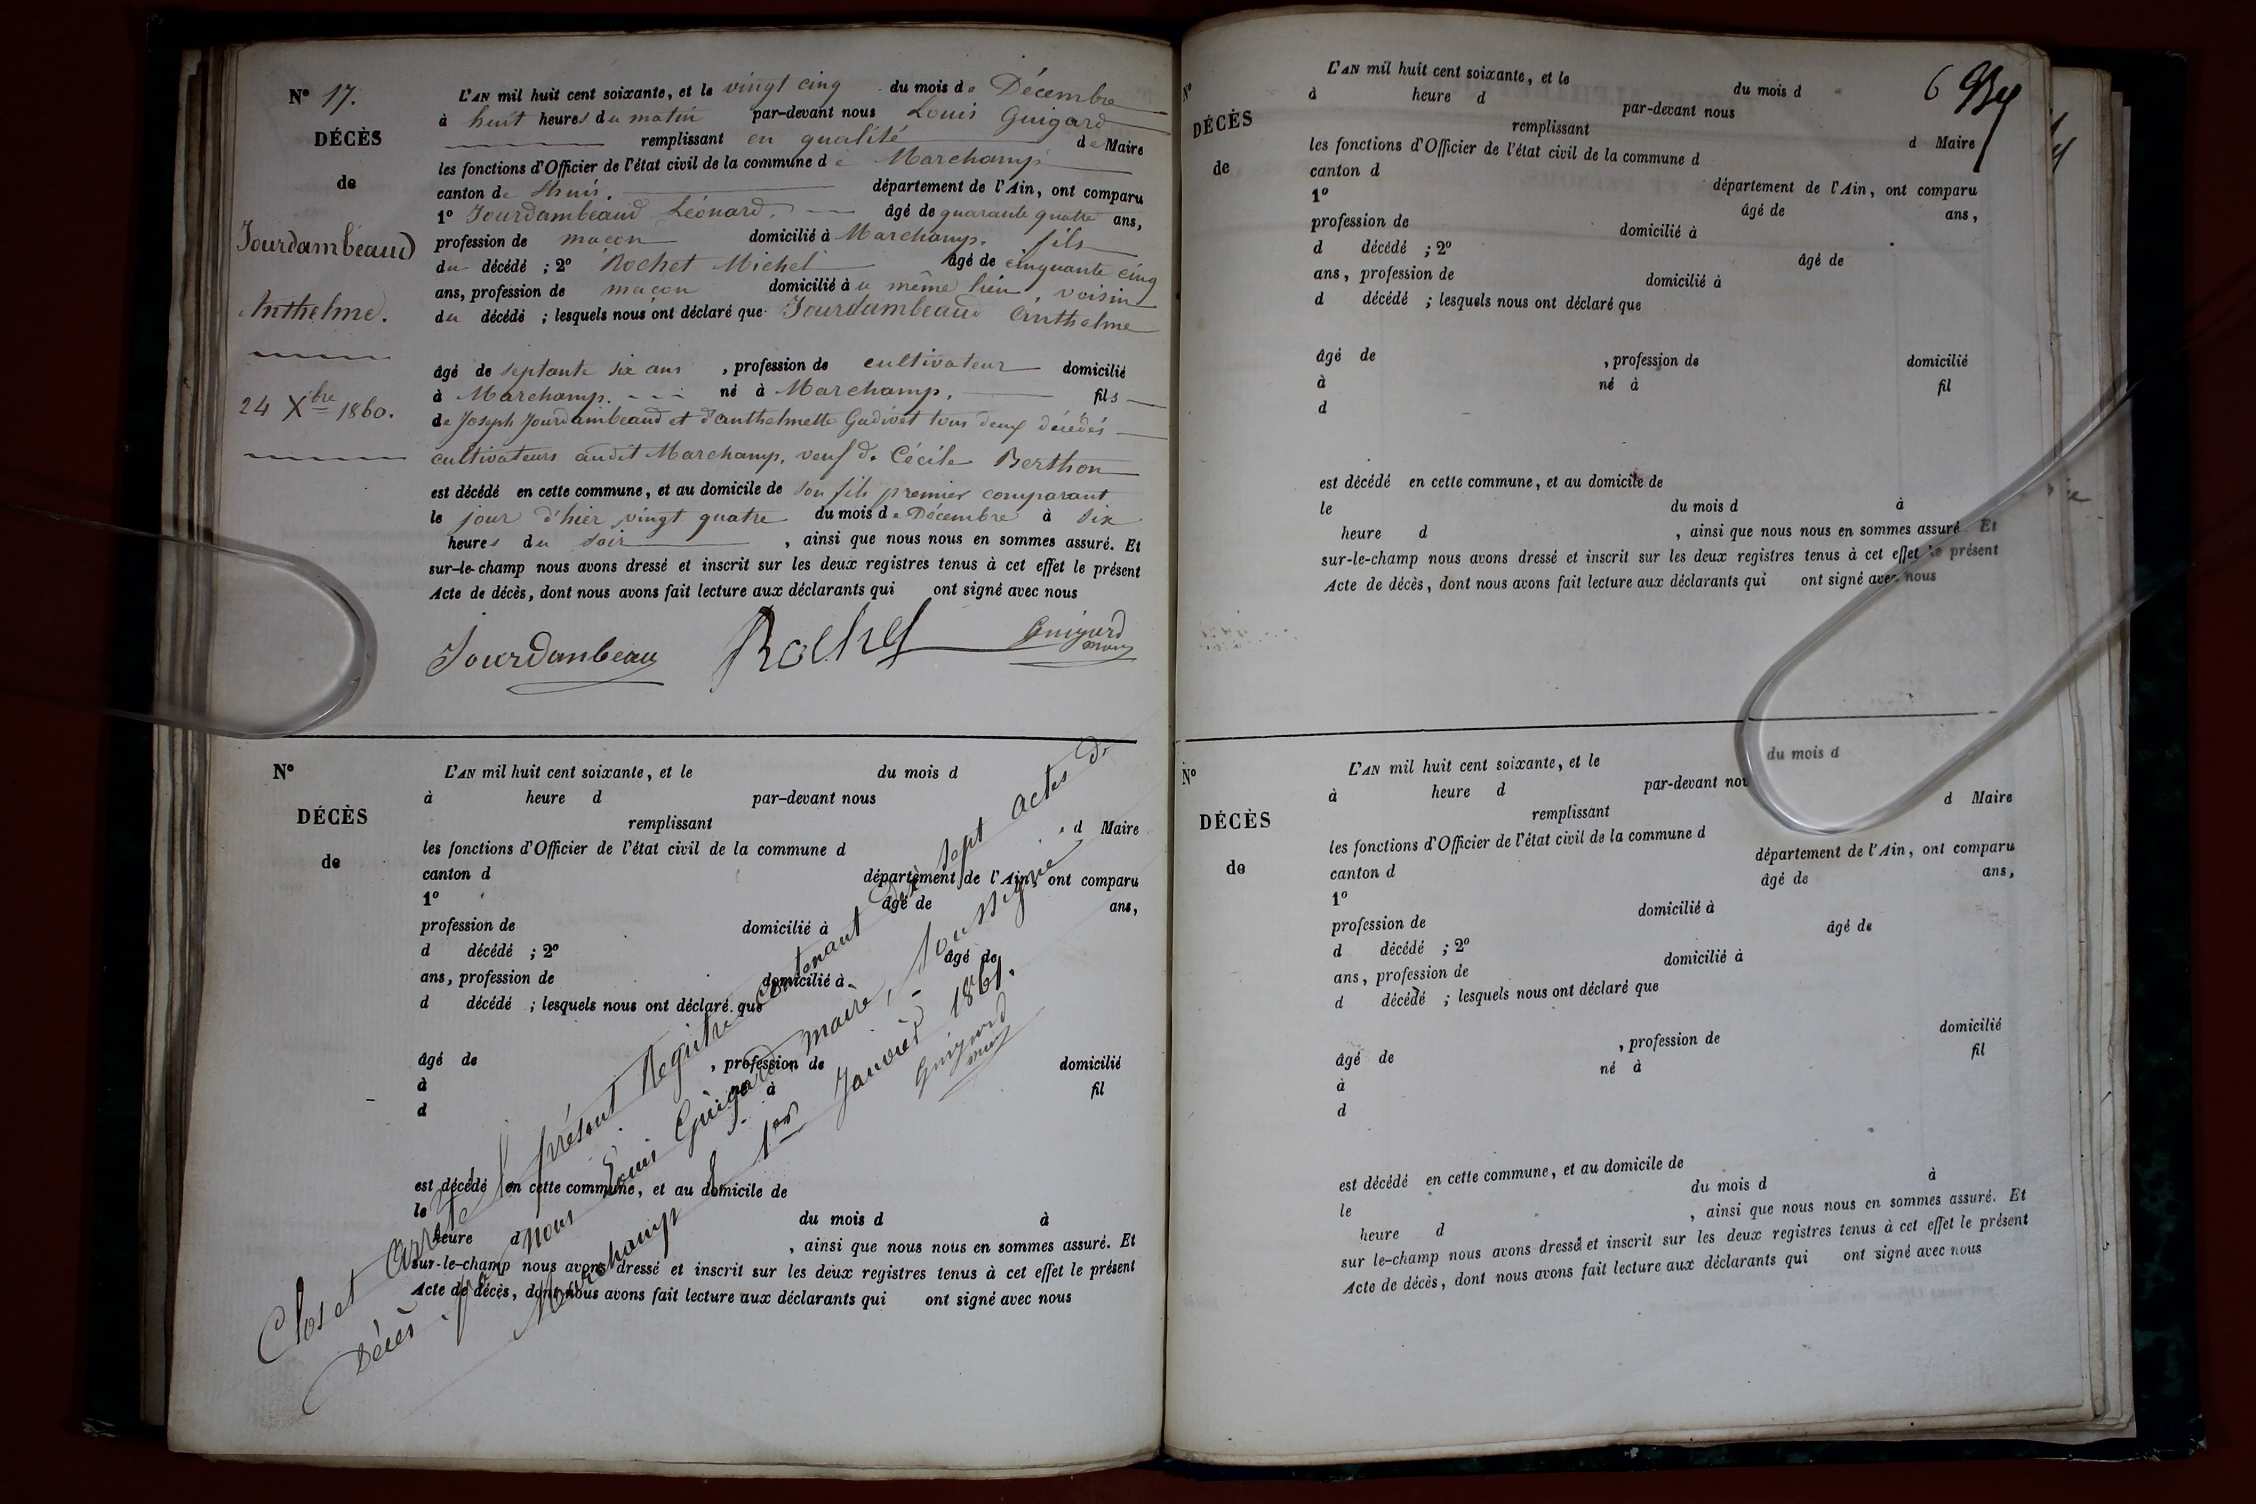 N° 17.
DÉCÈS
de
Jourdambeaud
Anthelme.
24 Xbre 1860.
L'AN mil huit cent soixante, et le vingt cinq du mois de Décembre
à huit heures du matin par-devant nous Louis Guigard
remplissant en qualité de Maire
les fonctions d'Officier de l'état civil de la commune de Marchamp
canton de Lhuis. département de l'Ain, ont comparu
1° Jourdambeaud Léonard. âgé de quarante quatre ans,
profession de maçon domicilié à Marchamp. fils
du décédé ; 2° Rochet Michel âgé de cinquante cinq
ans, profession de maçon domicilié à u même lieu, voisin
du décédé ; lesquels nous ont déclaré que Jourdambeaud Anthelme
âgé de septante six ans , profession de cultivateur domicilié
à Marchamp. né à Marchamp. fils
de Joseph Jourdambeaud et d'anthelmette Gudivet tous deux décédés
cultivateurs audit Marchamp, veuf de Cécile Berthon
est décédé en cette commune, et au domicile de son fils premier comparant
le jour d'hier vingt quatre du mois de Décembre à six
heures du soir , ainsi que nous nous en sommes assuré. Et
sur-le-champ nous avons dressé et inscrit sur les deux registres tenus à cet effet le présent
Acte de décès, dont nous avons fait lecture aux déclarants qui ont signé avec nous
Jourdanbeau Rochet Guigard
maire
N°
DÉCÈS
de
L'AN mil huit cent soixante, et le du mois d
à heure d par-devant nous
remplissant d Maire
les fonctions d'Officier de l'état civil de la commune d
canton d département de l'Ain, ont comparu
1° âgé de ans,
profession de domicilié à
d décédé ; 2° âgé de
ans, profession de domicilié à
d décédé ; lesquels nous ont déclaré que
âgé de , profession de domicilié
à né à fil
d
est décédé en cette commune, et au domicile de
le du mois d à
heure d , ainsi que nous nous en sommes assuré. Et
sur-le-champ nous avons dressé et inscrit sur les deux registres tenus à cet effet le présent
Acte de décès, dont nous avons fait lecture aux déclarants qui ont signé avec nous
Clos et arrêté le présent Registre contenant dix sept actes de
Décès par nous Louis Guigard maire, soussigné
Marchamp le 1er Janvier 1861.
Guigard
maire
6
N°
DÉCÈS
de
L'AN mil huit cent soixante, et le du mois d
à heure d par-devant nous
remplissant d Maire
les fonctions d'Officier de l'état civil de la commune d
canton d département de l'Ain, ont comparu
1° âgé de ans,
profession de domicilié à
d décédé ; 2° âgé de
ans, profession de domicilié à
d décédé ; lesquels nous ont déclaré que
âgé de , profession de domicilié
à né à fil
d
est décédé en cette commune, et au domicile de
le du mois d à
heure d , ainsi que nous nous en sommes assuré. Et
sur-le-champ nous avons dressé et inscrit sur les deux registres tenus à cet effet le présent
Acte de décès, dont nous avons fait lecture aux déclarants qui ont signé avec nous
N°
DÉCÈS
de
L'AN mil huit cent soixante, et le du mois d
à heure d par-devant nou
remplissant d Maire
les fonctions d'Officier de l'état civil de la commune d
canton d département de l'Ain, ont comparu
1° âgé de ans,
profession de domicilié à
d décédé ; 2° âgé de
ans, profession de domicilié à
d décédé ; lesquels nous ont déclaré que
âgé de , profession de domicilié
à né à fil
d
est décédé en cette commune, et au domicile de
le du mois d à
heure d , ainsi que nous nous en sommes assuré. Et
sur le-champ nous avons dressé et inscrit sur les deux registres tenus à cet effet le présent
Acte de décès, dont nous avons fait lecture aux déclarants qui ont signé avec nous